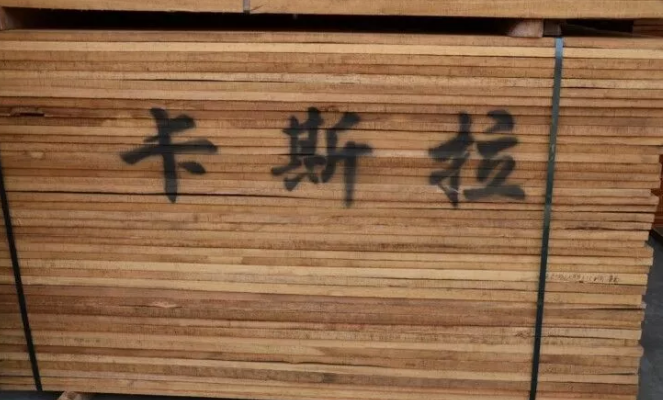 卡斯拉